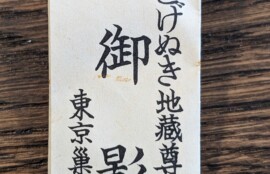 とげぬき地蔵尊
御影
東京巣